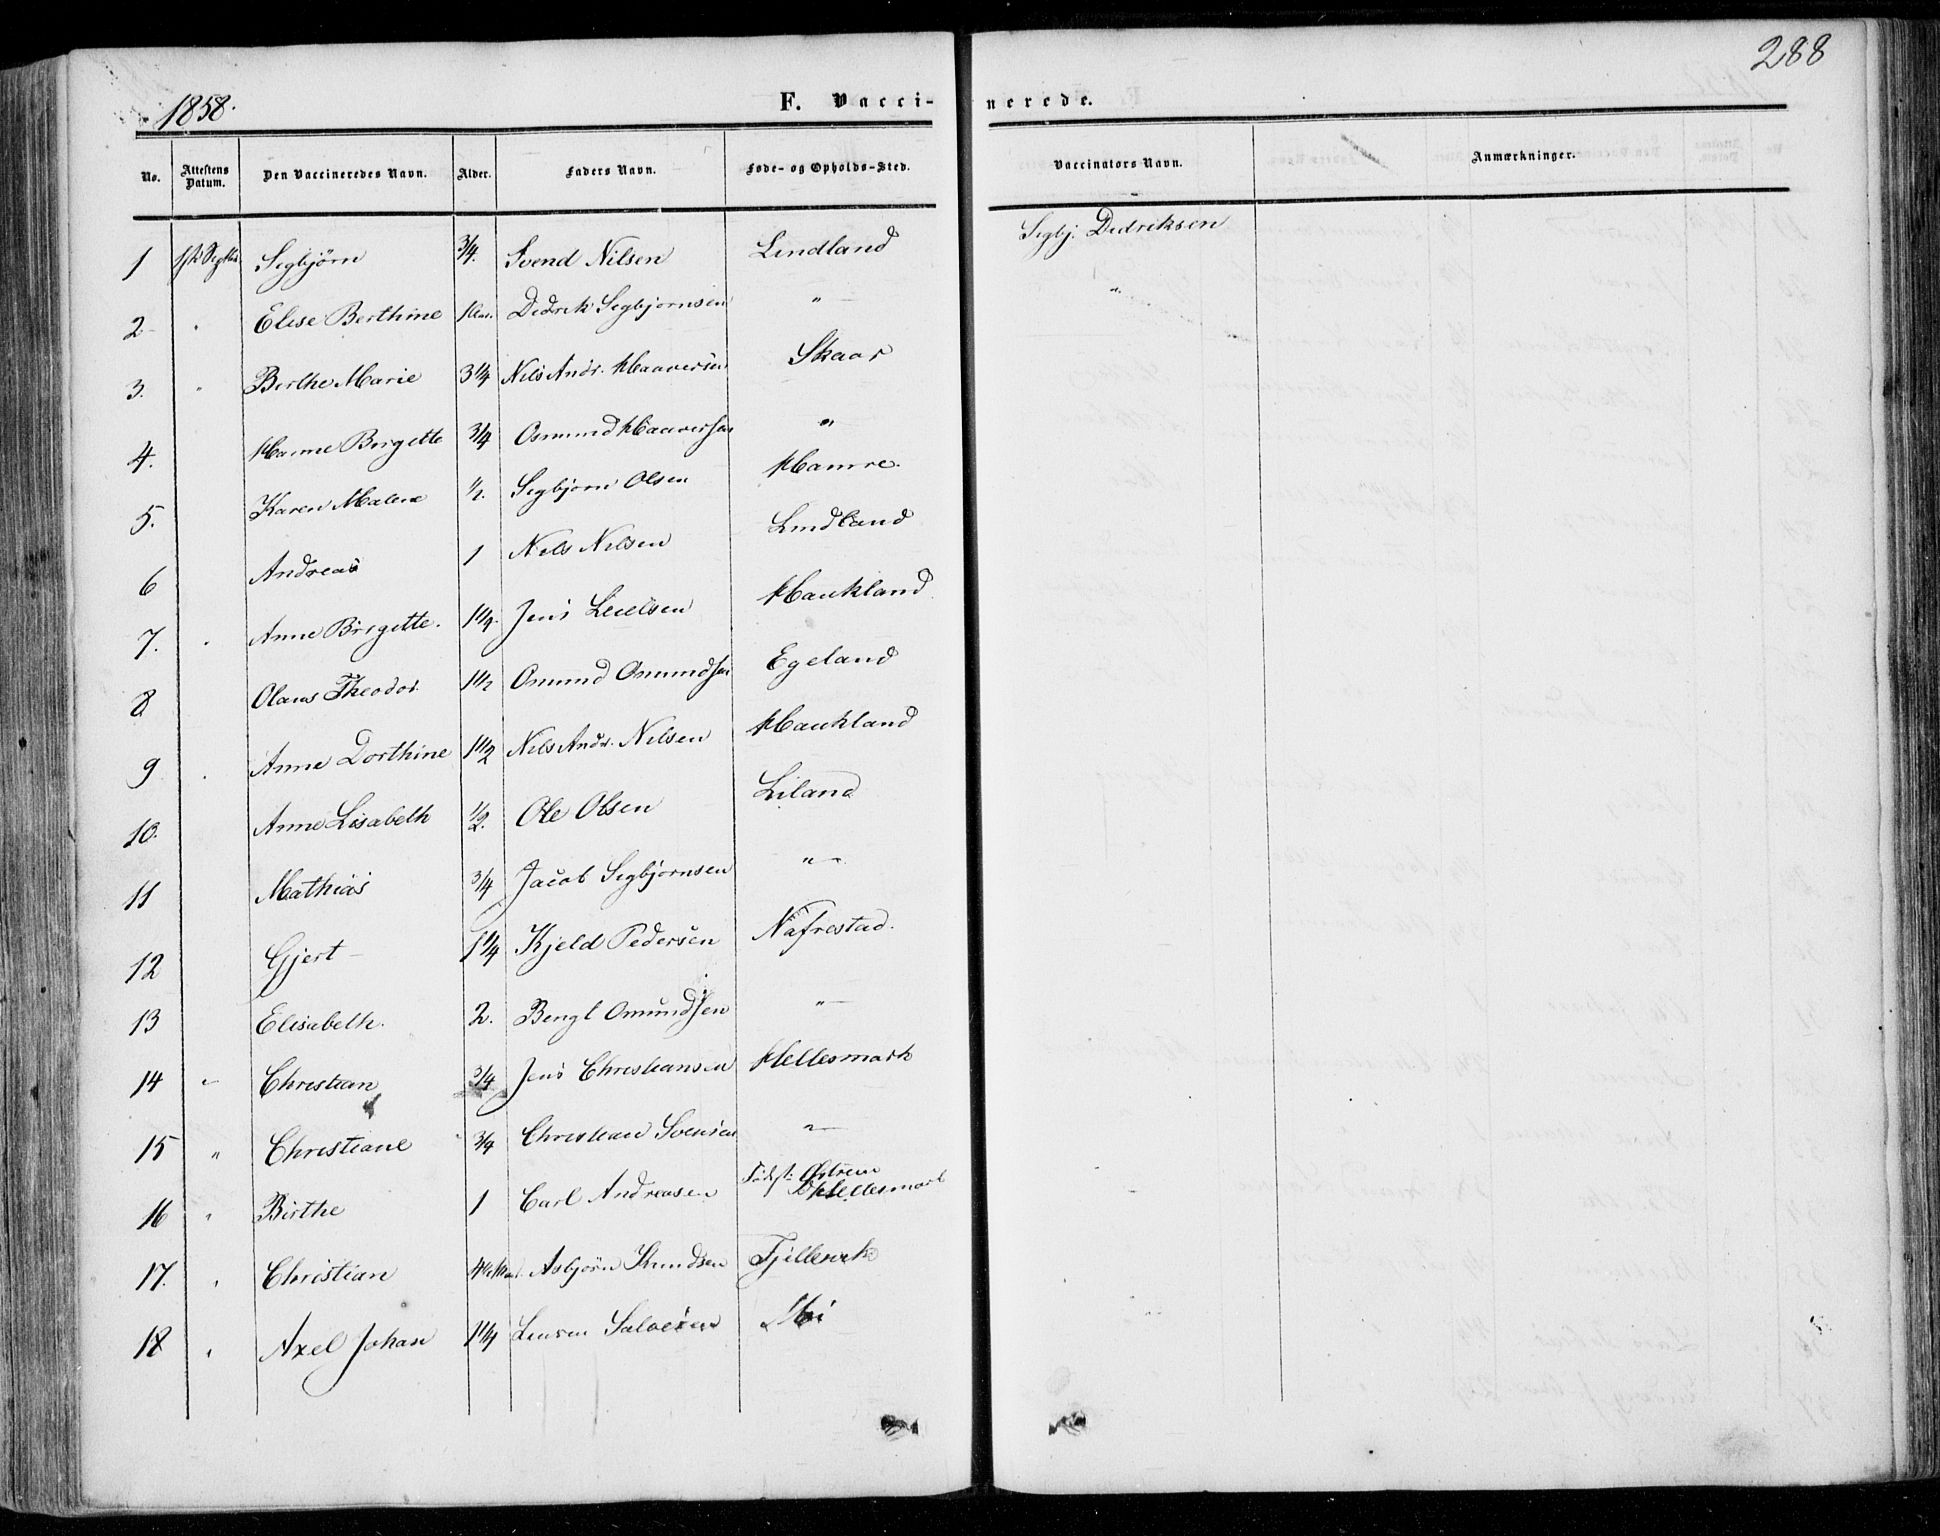 288
1858.
F. Vaccinerede.
No. Attestens Datum. Den Vaccineredes Navn. Alder. Faders Navn. Føde- og Opholds-Sted. Vaccinators Navn. Anmærkninger.
1 Segbjörn 3/4. Svend Nilsen Lindland Segbj. Dedriksen
2 " Elise Berthine Dedrik Segbjornsen " "
3. " Berthe Marie 3 1/4 Nils Andr. Haaversen Skaar
4. Hanne Bergette 3/4 Osmund Haaversen "
5. Karen Malene 1/2. Segbjorn Olsen Hamre.
6 Andreas 1 Nels Nelsen Lindland
7. " Anne Birgette. 1 1/4. Jens Haukland
8 Olaus Theodor 1 1/2 Osmund Osmundsen Egeland
9 " Anne Dorthine 1 1/2 Nels Andr. Nelsen Haukland
10. Anne Lisabeth 1/2. Ole Olsen Liland
11 Mathias 3/4 Jacob Segbjornsen "
12 Gjert 1 1/4 Kjeld Pedersen Nafrestad.
13 Elisabeth. 2. Bengt Omundsen "
14 " Christian 3/4 Jens Christiansen Hellesmark
15 " Christiane 3/4 Christian Svensen "
16 " Birthe 1 Carl Andreasen Födest: Østrem Hellesmark
17. " Christian Asbjörn Knudsen
18 " Axel Johan 1 1/4 Salvesen Moi